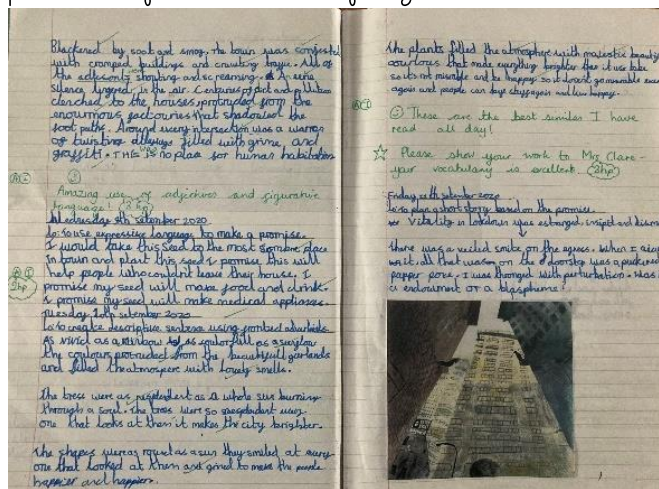 Blackened by soot and smog, the town was congested
with cramped buildings and crawling traffic. All of
the adjesents shouting and screaming. An eerie
silence lingered in the air. Centuries of dirt and pollution
clenched to the houses, protruded from the
enourmous factouries that shadowed the
foot paths. Around every intersection was a warren
of twisting alleyways filled with grime and
graffiti. THIS is no place for human habitation
Amazing use of adjectives and figurative
language! 2hp
Wednesday 9th setember 2020
Lo: to use expressive language to make a promise.
I would take this seed to the most sombre place
in town and plant this seed. I promise this will
help people who couldn't leave there house. I
promise my seed will make food and drink.
I promise my seed will make medical appliances.
2hp
tuesday 10th setember 2020
Lo: to create descriptive sentence using fronted adverbials
As vivid as a rainbow as colourfull as a
the coulours protruded from the beautifull garlands
and filled the atmospere with lovely smells.
The trees were as resplendent as a whole sun burning
through a soul. The trees were so resplendent every
one that looks at them it makes the city brighter.
The shapes were as round as a sun they smiled at every
one that looked at them and grined to make the people
happier and happier.
the plants filled the atmosphere with majestic beautiful
coulours that made everything brighter than it use to be
so its not misrable and be happy so it doesnt go misrable ever
again and people can buy stuff again and live happy.
These are the best similes I have
read all day!
Please show your work to Mrs Clare -
your vocabulary is excellent. 2hp
Friday 11th setember 2020
Lo: to plan a short story based on the promise.
Vitality in Lockdown was estranged, insipid and
there was a veiled smile on the
it. all that was on the doorstep was a puckered
paper pore. I was thonged with perturbation. Was
a endowment or a blaspheme?